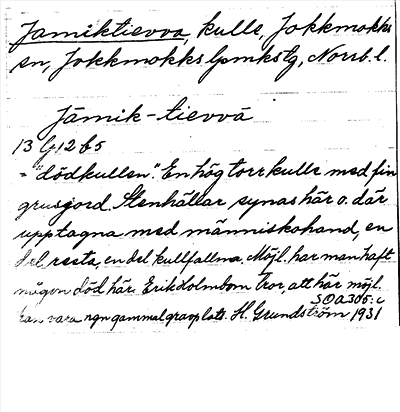 Jamiktievva, kulle, Jokkmokks
sn, Jokkmokks lpmkstg, Norrb. l.
Jämik-tievvā
13 G 12 b 5
= "dödkullen". En hög torr kulle med fin
grusjord. Stenhällar synas här o. där
upptagna med människohand, en
del resta, en del kullfallna. Möjl. har man haft
någon död här. Erik Holmbom tror, att här möjl.
kan vara ngn gammal gravplats. H. Grundström 1931
SOA 305: c